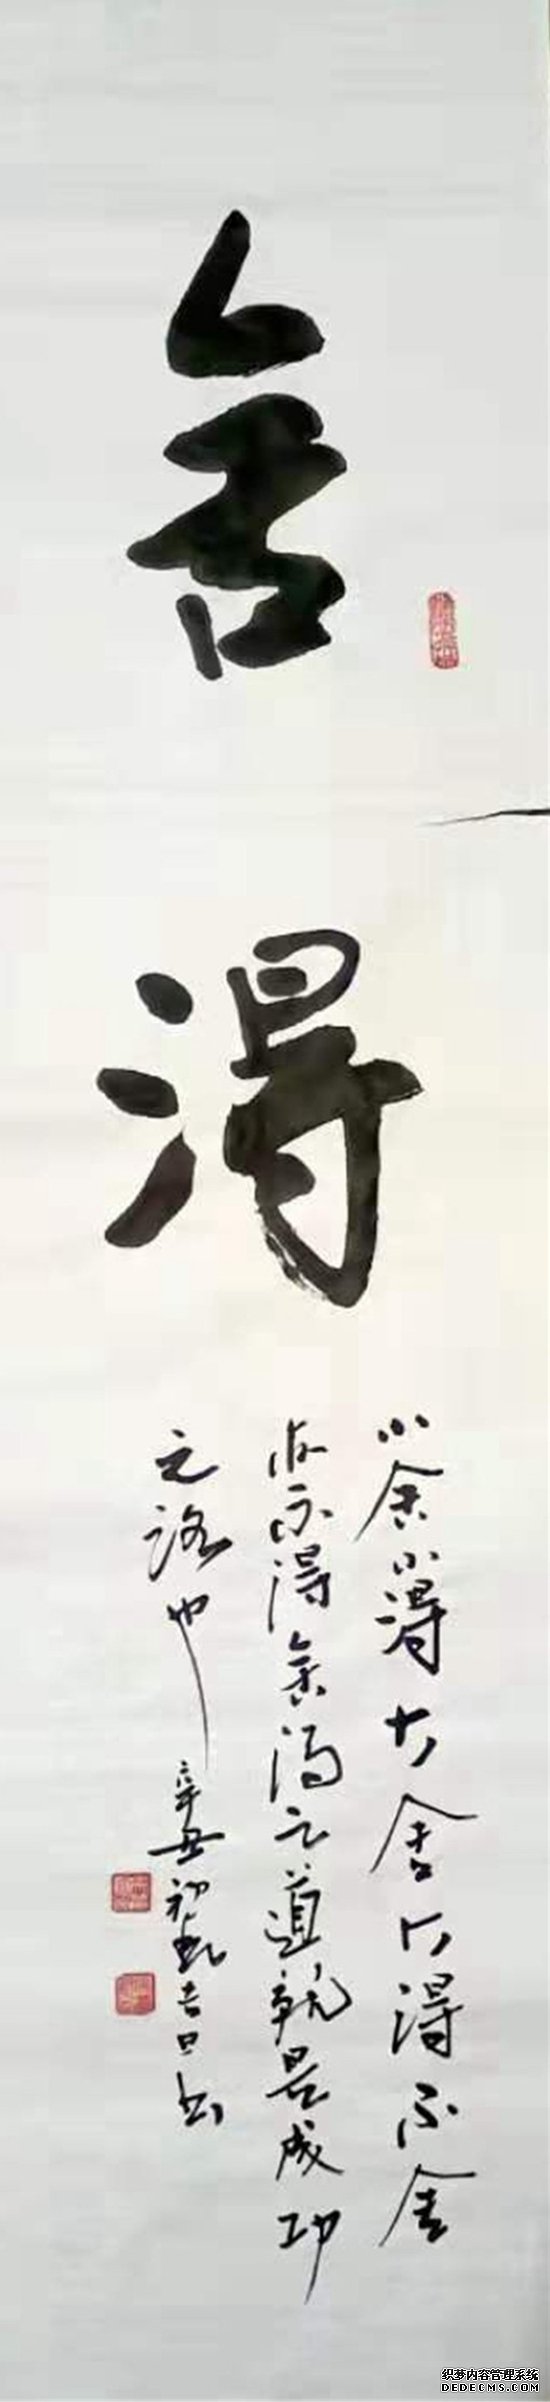 舍
得
小舍小得大舍大得不舍
亦不得舍得之道就是成功
之路也
辛丑初秋吉日书
织梦内容管理系统
DEDECMS.COM